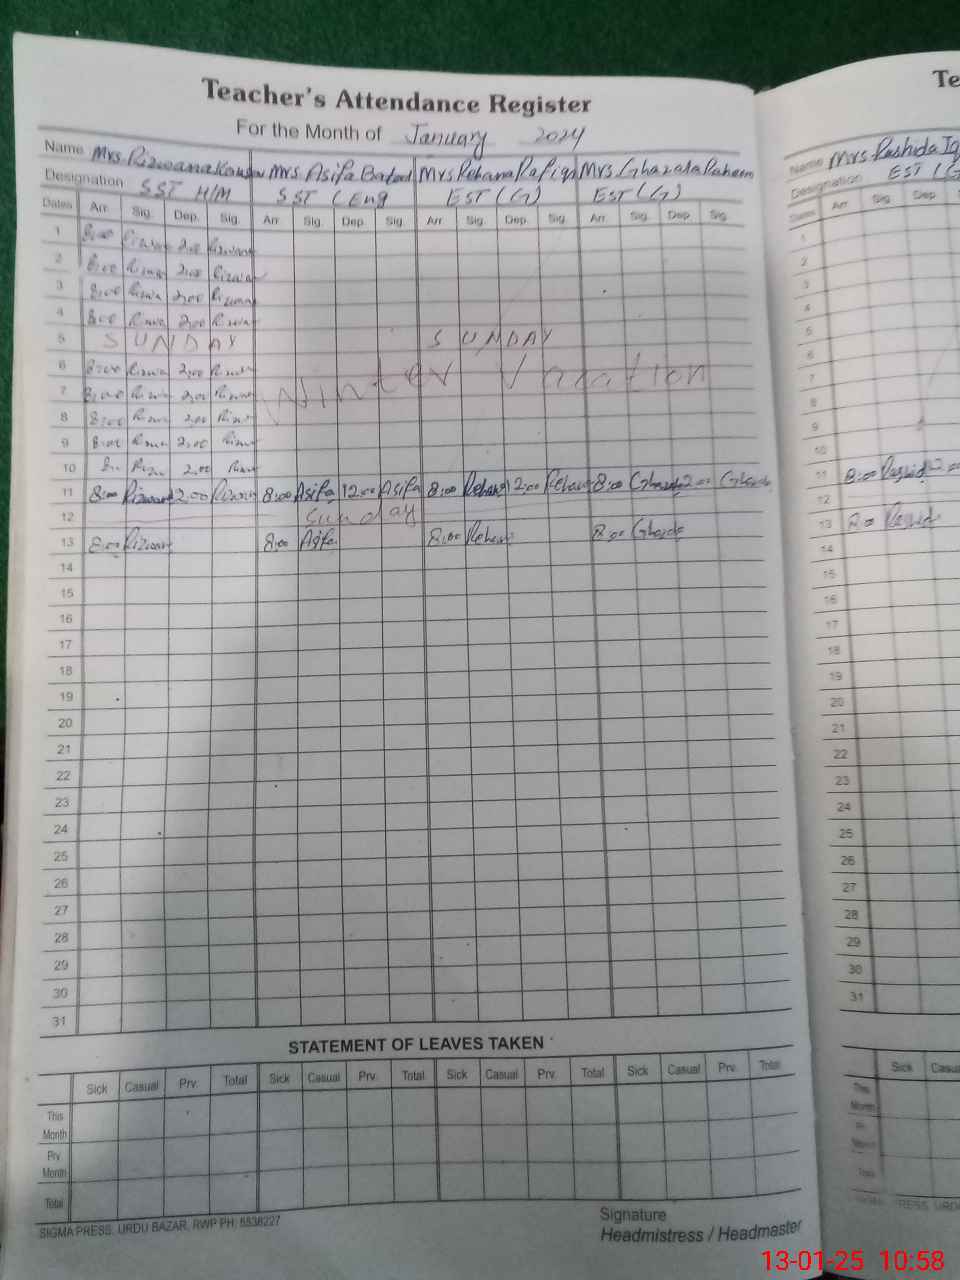 Teacher's Attendance Register
Te
For the Month of January 2024
Name Mrs. Rizwana Kausar Mrs Asifa Batool Mrs Rehana Rafiq Mrs. Ghazala Raheem
Name Mrs. Rashida Iq
Designation SST H/M SST (Eng EST (G) EST (G)
Designation EST (G
Dates Arr. Sig. Dep. Sig. Arr. Sig. Dep. Sig. Arr. Sig. Dep. Sig. Arr. Sig. Dep. Sig.
Dates Arr Sig Dep
1 8:00 Rizwana 2:00 Rizwana
2 8:00 Rizwa 2:00 Rizwa
3 8:00 Rizwa 2:00 Rizwa
4 8:00 Rizwa 2:00 Rizwa
5 SUNDAY SUNDAY
6 8:00 Rizwa 2:00 Rizwa
Winter Vacation
7 8:00 Rizwa 2:00 Rizwa
8 8:00 Rizwa 2:00 Rizwa
9 8:00 Rizwa 2:00 Rizwa
10 2:00
11 8:00 Rizwan 2:00 Rizwan 8:00 Asifa 12:00 Asifa 8:00 Rehana 2:00 Rehana 8:00 Ghazala 2:00 Ghazala
12 Sunday
13 8:00 Rizwan 8:00 Asifa 8:00 Rehana 8:00 Ghazala
14
15
16
17
18
19
20
21
22
23
24
25
26
27
28
29
30
31
1
2
3
4
5
6
7
8
9
10
11 8:00 Rashid 2:00
12
13 8:00 Rashid
14
15
16
17
18
19
20
21
22
23
24
25
26
27
28
29
30
31
STATEMENT OF LEAVES TAKEN
Sick Casual Prv. Total Sick Casual Prv. Total Sick Casual Prv. Total Sick Casual Prv. Total
Sick Casu
This
Month
Prv
Month
Total
This
Month
Total
SIGMA PRESS, URDU BAZAR, RWP PH: 5538227
Signature
Headmistress / Headmaster
13-01-25 10:58